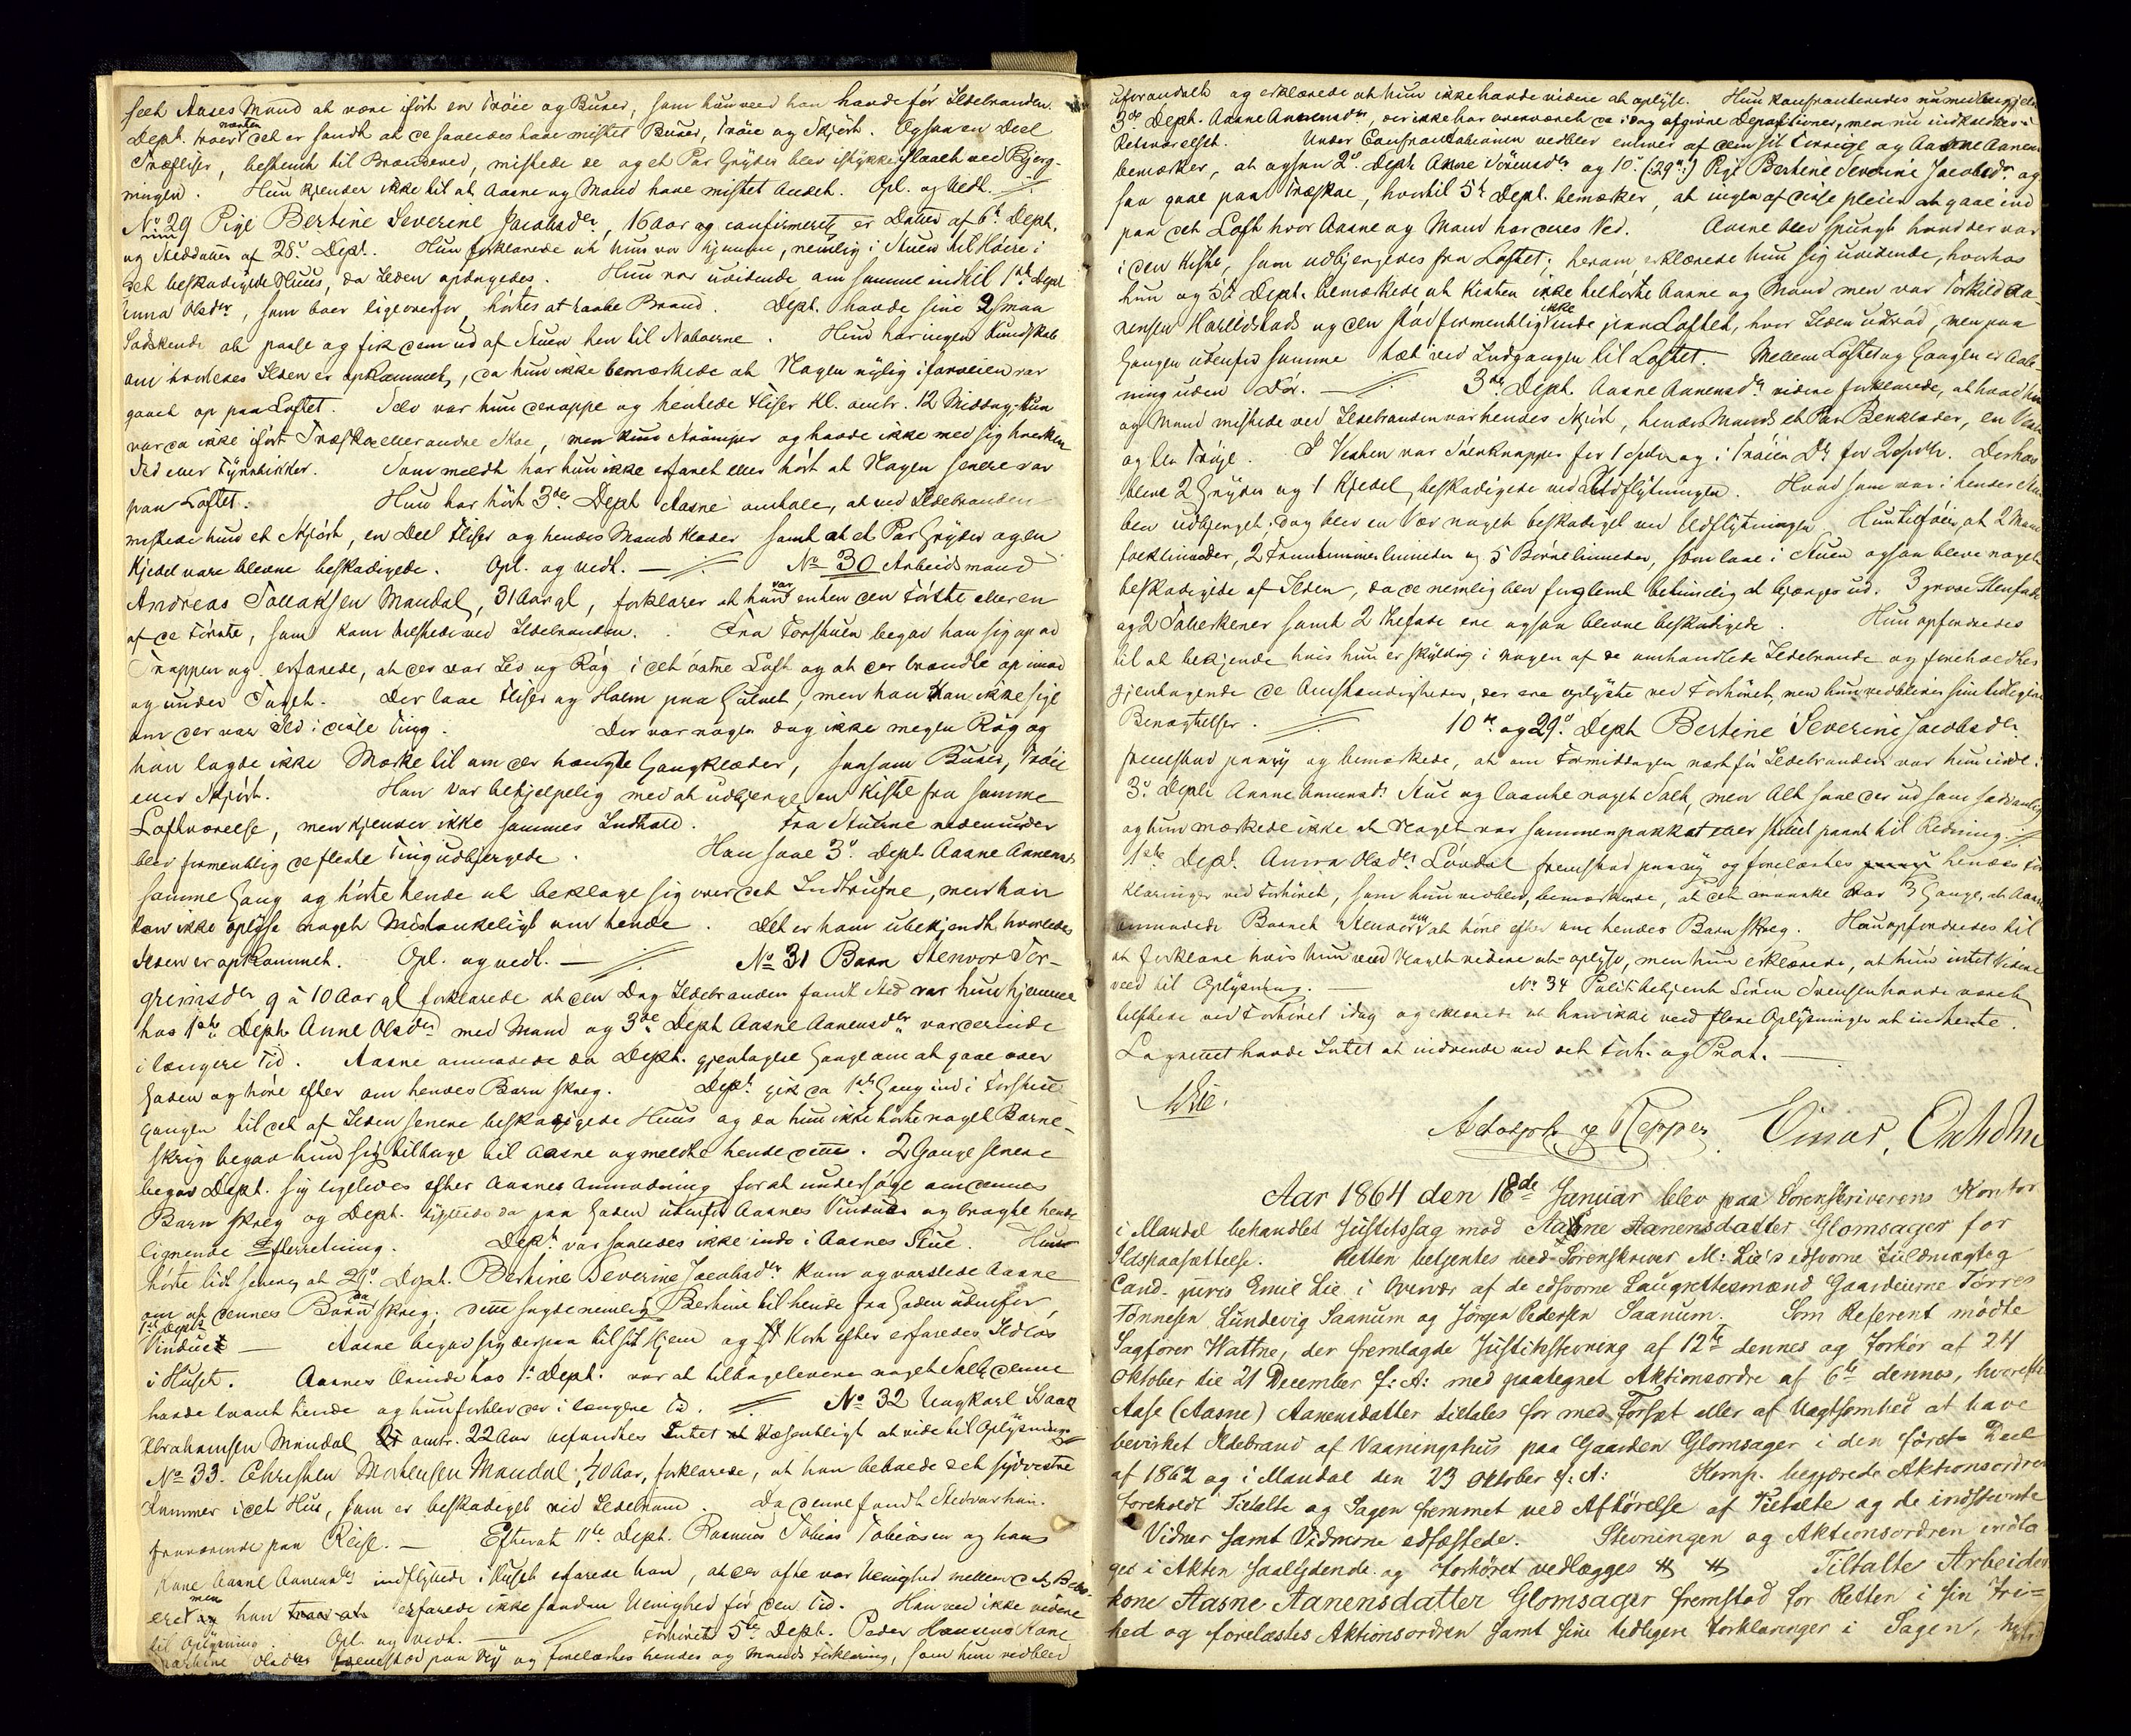 seet Aases Mand at være iført en Trøie og Buxer, som hun veed han havde før Ildebranden.
Dept. troer næsten det er sandt at de saaledes have mistet Buxer, Trøie og Skjört. Ogsaa en Deel
Træfliser, bestemt til Brændeved, mistede de og et Par Gryder blev istykkerslaaet ved Bjerg-
ningen. Hun kjender ikke til at Aasne og Mand have mistet Andet. Opl. og Vedt. —//—
No 29 Pige Bertine Severine Jacobsdtr, 16 Aar og confirmeret er Datter af 6te Dept.
og Steddatter af 28de Dept. Hun forklarede at hun var hjemme, nemlig i Stuen til Høire i
det beskadigede Huus, da Ilden opdagedes. Hun var uvidende om samme indtil 1ste Dept
Anna Olsdtr, som boer ligeoverfor, hørtes at raabe Brand. Dept. havde sine 2 smaa
Sødskende at passe og fik dem ud af Stuen hen til Naboerne. Hun har ingen Kundskab
om hvorledes Ilden er opkommet, da hun ikke bemærkede at Nogen nylig iforveien var
gaaet op paa Loftet. Selv var hun deroppe og hentede Fliser Kl. omtr. 12 Middag. Hun
var da ikke iført Træsko eller andre Skoe, men kuns Strømper og havde ikke med sig hverken
Ild eller Fyrstikker. Som meldt har hun ikke erfaret eller hört at Nogen senere var
paa Loftet. Hun har hört 3die Dept Aasne omtale, at ved Ildebranden
mistede hun et Skjört, en Deel Fliser og hendes Mands Klæder samt at et Par Gryder og en
Kjedel vare blevne beskadigede. Opl. og vedt. —//— No 30 Arbeidsmand
Andreas Tallaksen Mandal, 31 Aar gl, forklarer at han var enten den Første eller en
af de Første, som kom tilstede ved Ildebranden. Fra Forstuen begav han sig op ad
Trappen og erfarede, at der var Ild og Røg i det østre Loft og at der brændte op imod
og under Taget. Der laae Fliser og Halm paa Gulvet, men han kan ikke sige
om der var Ild i disse Ting. Der var nogen dog ikke megen Røg og
han lagde ikke Mærke til om der hængte Gangklæder, saasom Buxer, Trøie
eller Skjört. Han var behjelpelig med at udbjerge en Kiste fra samme
Loftværelse, men kjender ikke sammes Indhold. Fra Stuerne nedenunder
blev formentlig de fleste Ting udbjergede. Han saae 3die Dept Aasne Aanensdtr
samme Gang og hörte hende at beklage sig over det Indtrufne, men han
kan ikke oplyse noget Mistænkeligt om hende. Det er ham ubekjendt, hvorledes
Ilden er opkommet. Opl. og vedt. —//— No 31 Barn Stenvor Tor-
grimsdtr 9 à 10 Aar gl forklarede at den Dag Ildebranden fandt Sted var hun hjemme
hos 1ste Dept Anne Olsdtr med Mand og 3die Dept Aasne Aanensdtr var derinde
i længere Tid. Aasne anmodede da Dept. gjentagne Gange om at gaae over
Gaden og höre efter om hendes Barn skreg. Dept gik da 1ste Gang ind i Forstue-
gangen til det af Ilden senere beskadigede Huus og da hun ikke hörte noget Barne-
skrig begav hun sig tilbage til Aasne og meldte hende dette. 2 Gange senere
begav Dept. sig ligeledes efter Aasnes Anmodning for at undersöge om dennes
Barn skreg og Dept. lyttede da paa Gaden udenfor Aasnes Vinduer og bragte hende
lignende Efterretning. Dept var saaledes ikke inde i Aasnes Stue. Hun
hörte lidt senere at 29de Dept. Bertine Severine Jacobsdtr kom og varslede Aasne
om at dennes Barn da skreg; dette sagde nemlig Bertine til hende fra Gaden udenfor
1ste Depts
Vinduet — Aasne begav sig derpaa til sit Hjem og kort efter erfaredes Ildløs
i Huset. Aasnes Ærinde hos 1ste Dept. var at tilbagelevere noget Salt denne
havde laant hende og hun forblev der i længere Tid. —//— No 32 Ungkarl Isaac
Abrahamsen Mandal omtr. 22 Aar befandtes Intet Væsentligt at vide til Oplysning
No 33. Christen Mortensen Mandal, 40 Aar, forklarede, at han beboede det sydvestre
Kammer i det Hus, som er beskadiget ved Ildebrand. Da denne fandt Sted var han
fraværende paa Reise. — Efterat 11te Dept. Rasmus Tobias Tobiassen og hans
Kone Aasne Aanensdtr indflyttede i Huset erfarede han, at der ofte var Uenighed mellem dets Bebo-
ere, men han erfarede ikke saadan Uenighed för den Tid. Han veed ikke videre
til Oplysning. Opl. og Vedt. —//— Forhörets 5te Dept. Peder Hansens Kone
Olsdtr fremstod paa Ny og forelæstes hendes og Mands Forklaring, som hun vedblev
uforandrede og erklærede at hun ikke havde videre at oplyse. Hun konfronteredes nu med
3die Dept. Aasne Aanensdtr, der ikke har overværet de i Dag afgivne Depositioner, men nu indkaldes i
Retsværelset. Under Confrontationen vedblev enhver af dem sit Forrige og Aasne Aanensdtr
bemærker, at ogsaa 2den Dept Anne Sörensdtr og 10de (:29de:) Pige Bertine Severine Jacobsdtr og
saa gaae paa Træskoe, hvortil 5te Dept. bemærker, at ingen af disse pleier at gaae ind
paa det Loft hvor Aasne og Mand har deres Ved. Aasne blev spurgt hvad der var
i den Kiste, som udbjergedes fra Loftet; herom erklærede hun sig uvidende, hvorhos
hun og 5te Dept. bemærkede at Kisten ikke tilhörte Aasne og Mand men var Torkild Aa-
nensen Harlidstads og den stod formentlig ikke inde paa Loftet, hvor Ilden udbrød, men paa
Gangen udenfor samme tæt ved Indgangen til Loftet. — Mellem Loftet og Gangen er Aab-
ning uden Dör. —//— 3die Dept. Aasne Aanensdtr videre forklarede, at hvad hun
og Mand mistede ved Ildebranden var hendes Skjört, hendes Mands et Par Benklæder, en Vest
og en Tröje. I Vesten var Sölvknapper for 1 Spdlr og i Tröien Do for 2 Spdlr. Derhos
bleve 2 Gryder og 1 Kjedel beskadigede ved Udflytningen. Hvad som var i hendes Stue
blev udbjerget; dog blev en Væv noget beskadiget ved Udflytningen. Hun tilföier, at 2 Mand-
folklinneder, 2 Fruentimmerlinneder og 5 Börnelinneder, som laae i Stuen ogsaa bleve noget
beskadigede af Ilden, da de nemlig blev forglemt betimelig at bjerges ud. 3 grove Steenfade
og 2 Tallerkener samt 2 Thefade ere ogsaa blevne beskadigede. Hun opfordredes
til at bekjende hvis hun er skyldig i nogen af de omhandlede Ildebrande og foreholdtes
gjentagende de Omstændigheder, der ere oplyste ved Forhöret, men hun vedbliver sin tidligere
Benægtelse. —//— 10de og 29de Dept Bertine Severine Jacobsdtr
fremstod paany og bemærkede, at om Formiddagen næst för Ildebranden var hun inde i
3die Depts Aasne Aanensdtrs Stue og laante noget Salt, men Alt saae der ud som sædvanlig
og hun mærkede ikke at Noget var sammenpakket eller stillet paant til Redning. //
1ste Dept. Anna Olsdtr Lövdal fremstod paa ny og forelæstes hendes For-
klaringer ved Forhöret, som hun vedblev, bemærkende, at det maaske var 3 Gange, at Aasne
anmodede Barnet Stenvor om at höre efter om hendes Barn skreg. Hun opfordredes til
at forklare hvis hun veed Noget videre at oplyse, men hun erklærede, at hun intet Videre
veed til Oplysning. — No 34 Politibetjent Sören Svensen havde været
tilstede ved Forhöret idag og erklærede at han ikke veed flere Oplysninger at indhente.
Lagrettet havde Intet at indvende ved det Forh. og Prot. —
Lie.
Adolph Kepper Einar, Omholm
Aar 1864 den 18de Januar blev paa Sorenskriverens Kontor
i Mandal behandlet Justitssag mod Aasne Aanensdatter Glomsager for
Ildspaasættelse. Retten betjentes ved Sorenskriver M: Lie's edsvorne Fuldmægtig
Cand. juris Emil Lie i Overvær af de edsvorne Laugrettesmænd Gaardeierne Tørres
Tønnesen Lundevig Saanum og Jørgen Pedersen Saanum. Som Referent mødte
Sagfører Wattne, der fremlagde Justitsstevning af 12te dennes og Forhør af 24
Oktober til 21 December f: A: med paategnet Aktionsordre af 6te dennes, hvorefter
Aase (Aasne) Aanensdatter tiltales for med Forsæt eller af Uagtsomhed at have
bevirket Ildebrand af Vaaningshus paa Gaarden Glomsager i den første Deel
af 1862 og i Mandal den 23 Oktober f: A: Komp. begjærede Aktionsordren
foreholdt Tiltalte og Sagen fremmet ved Afhørelse af Tiltalte og de indstevnte
Vidner samt Vidnerne edfæstede. Stevningen og Aktionsordren indta
ges i Akten saalydende og Forhøret vedlægges # # Tiltalte Arbeider
kone Aasne Aanensdatter Glomsager fremstod for Retten i sin Fri=
hed og forelæstes Aktionsordren samt sine tidligere Forklaringer i Sagen,